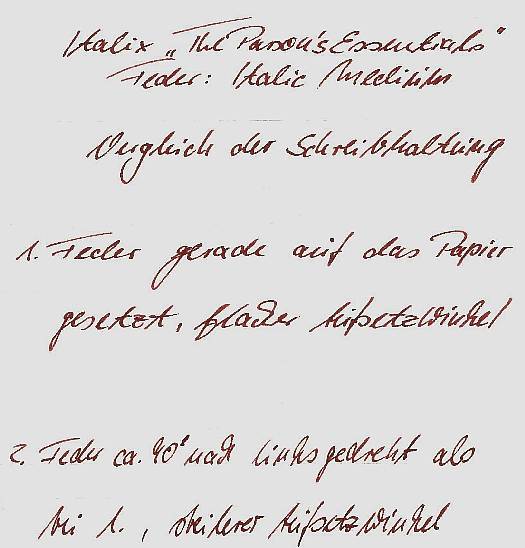 Italix „The Parson's Essentials“
Feder: Italic Medium
Vergleich der Schreibhaltung
1. Feder gerade auf das Papier
gesetzt, flacher Aufsetzwinkel
2. Feder ca. 40° nach links gedreht als
bei 1., steilerer Aufsetzwinkel